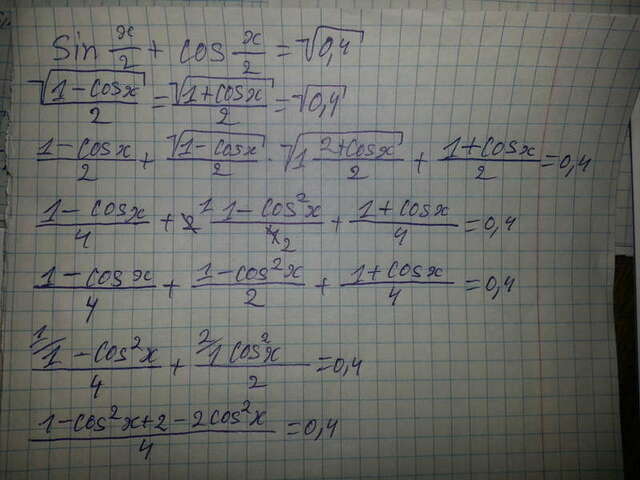 sin x/2 + cos x/2 = √0,4
√1-cosx/2 = √1+cosx/2 = √0,4
1-cosx/2 + √1-cosx/2 · √1 2+cosx/2 + 1+cosx/2 = 0,4
1-cosx/4 + 2 1 1-cos²x/4 2 + 1+cosx/4 = 0,4
1-cosx/4 + 1-cos²x/2 + 1+cosx/4 = 0,4
1/1-cos²x/4 + 2/1 cos²x/2 = 0,4
1-cos²x+2-2cos²x/4 = 0,4